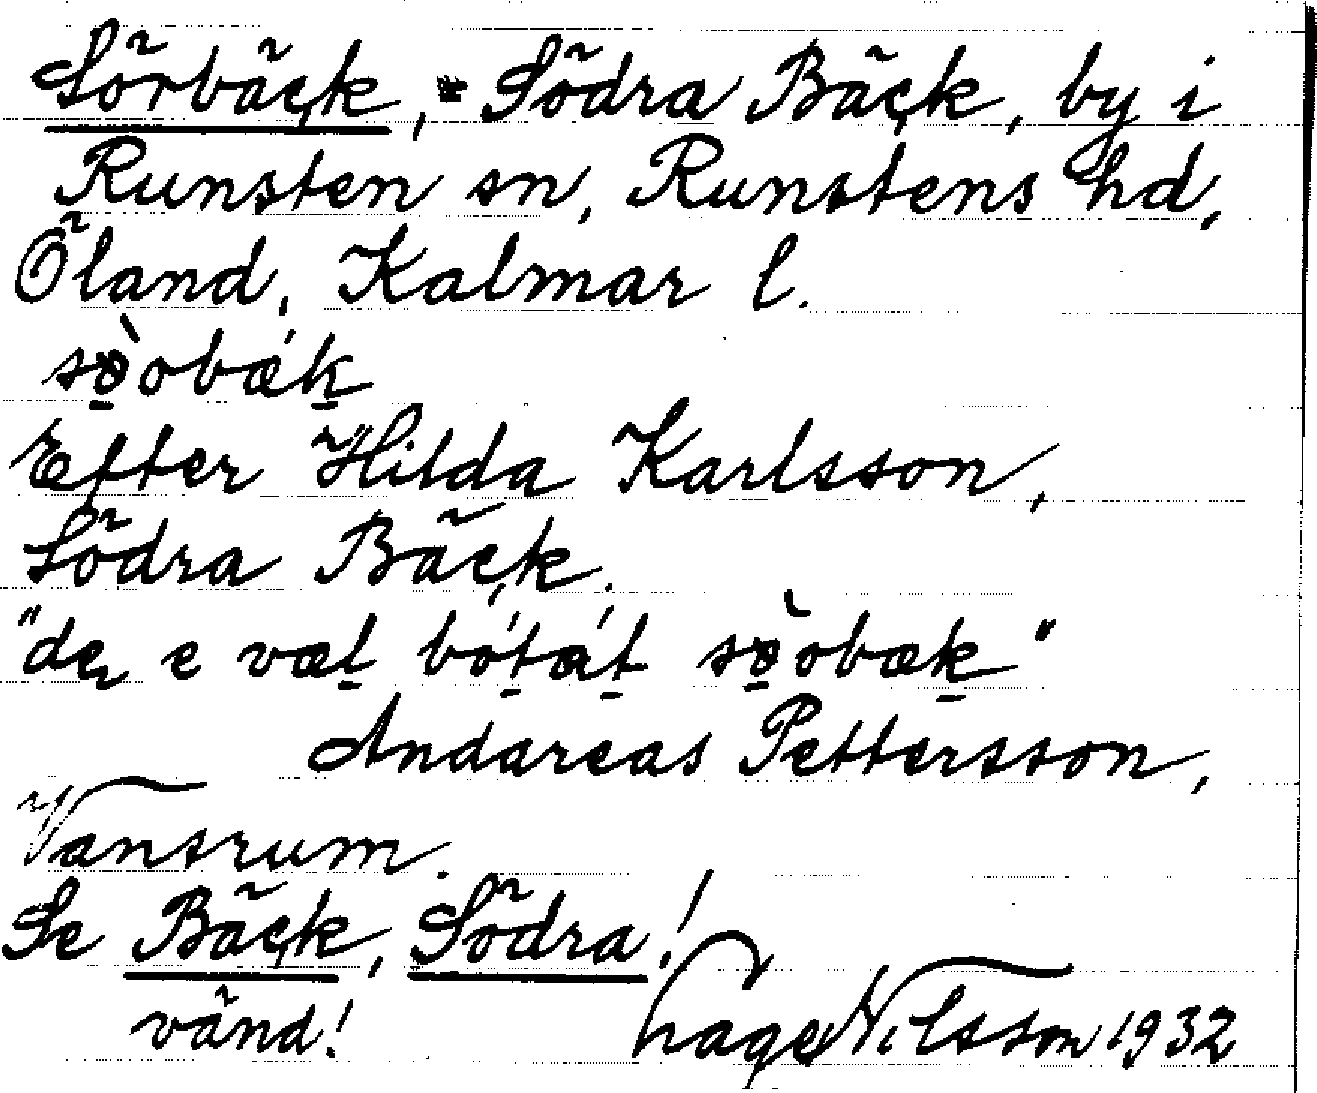 Sörbäck, = Södra Bäck, by i
Runsten sn, Runstens hd,
Öland, Kalmar l.
sö̀obǽk
Efter Hilda Karlsson,
Södra Bäck.
"de e væl bótát sö̀obæk"
Andareas Pettersson,
Vansrum.
Se Bäck, Södra!
vänd! Hage Nilsson 1932